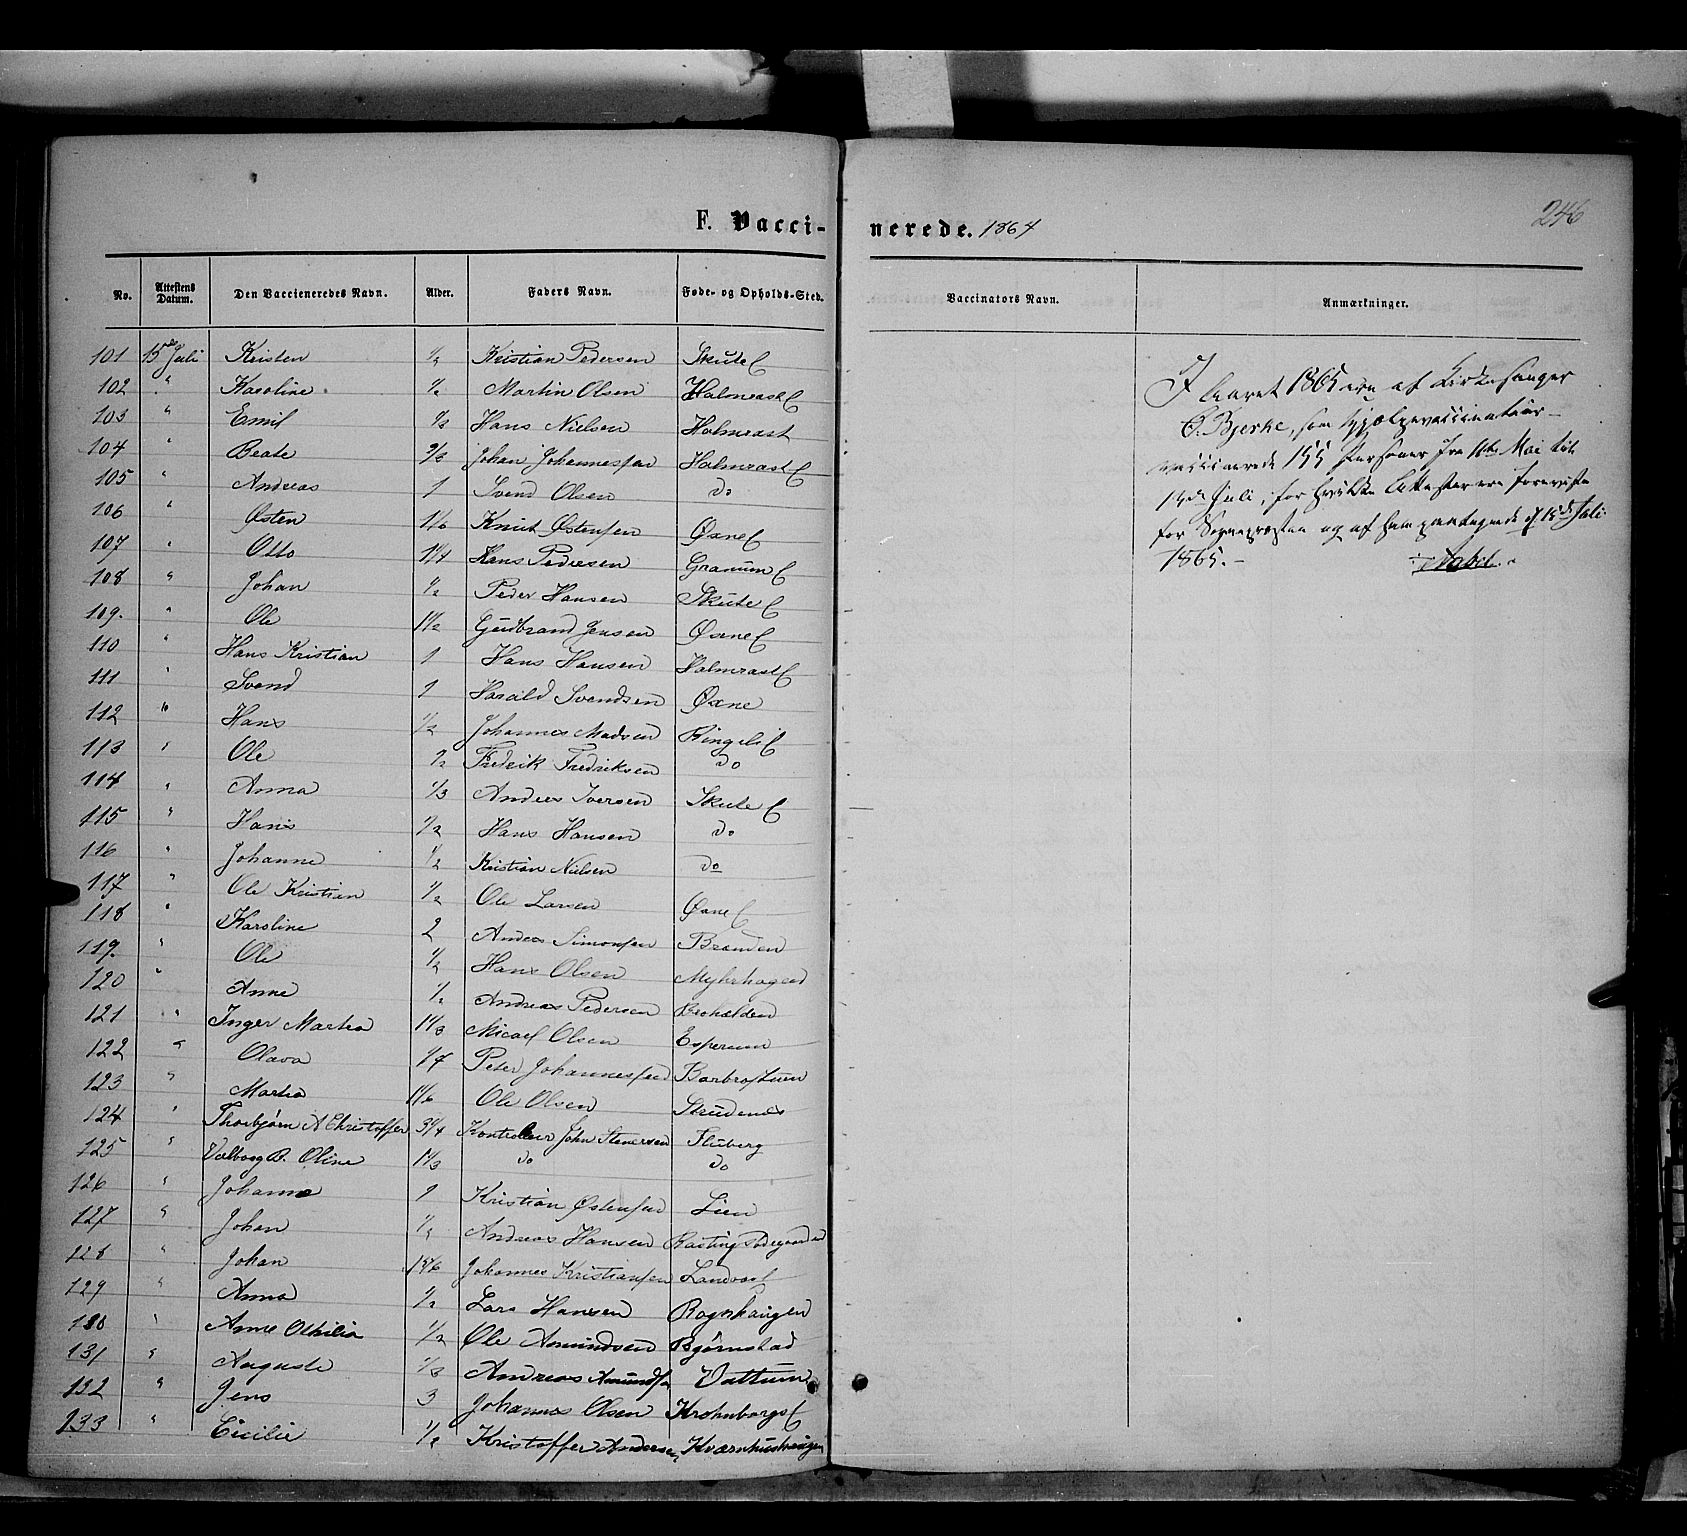 F. Vacci- nerede. 1864
246
No. Attestens Datum. Den Vaccieneredes Navn. Alder. Faders Navn. Føde- og Opholds-Sted. Vaccinators Navn. Anmærkninger.
101 15de Juli Kristen 1/2 Kristian Pedersen Skute E
102 " Karoline 1/2 Martin Olsen Holmrast E
103 " Emil 1/2 Hans Nielsen Holmrast
104 " Beate 2/3 Johan Johannessen Holmrast E
105 " Andreas 1 Svend Olsen do
106 " Østen 1 1/6 Knut Østensen Øxne E
107 " Otto 1 1/4 Hans Pedersen Granum E
108 " Johan 1/2 Peder Hansen Skute E
109. " Ole 1 1/2 Gudbrand Jensen Øxne E
110 " Hans Kristian 1 Hans Hansen Holmrast E
111 " Svend 1 Harald Svendsen Øxne
112 " Hans 1/2 Johannes Madsen Ringeli E
113 " Ole 1/2 Fredrik Fredriksen do
114 " Anna 1/3 Anders Iversen Skute E
115 " Hans 1/2 Hans Hansen do
116 " Johanne 1/2 Kristian Nielsen do
117 " Ole Kristian 1/2 Ole Larsen Øxne E
118 " Karoline 2 Anders Simonsen Branden
119. " Ole 1/2 Hans Olsen Myhrhagen
120 " Anne 1/2 Andreas Pedersen
121 " Inger Martea 1 1/3 Micael Olsen Esperum
122 " Olava 1/4 Peter Johannessen Barbrostuen
123 " Martea 1 1/6 Ole Olsen
124 " Thorbjørn A Christoffer 3 1/4 Kontrolleur John Stenersen Fluberg
125 " Valborg B. Oline 1 1/3 do do
126 " Johanne 1 Kristian Østensen Lien
127 " Johan 1/2 Andreas Hansen
128 " Johan 1 5/6 Johannes Kristiansen Landaas E
129 " Anna 1/2 Lars Hansen Rognhaugen
130 " Anne Othilia 1/2 Ole Amundsen Bjørnstad
131 " Auguste 1/3 Andreas Amunds Vattum
132 " Jens 3 Johannes Olsen Krohnborgs E
133 " Cicilie 1/2 Kristoffer Andersen Kværnhushaugen
I Aaret 1865 ere af Kirkesanger
O. Bjerke, som Hjælpevaccinatør
vaccinerede 155 Personer fra 16de Mai til
14de Juli, for hvilke Attester ere foreviste
for Sognepresten og af ham paategnede d. 15de Juli
1865.-